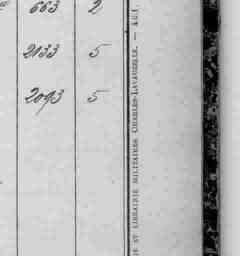 663 2
2133 5
2093 5
IE ET LIBRAIRIE MILITAIRES CHARLES-LAVAUZELLE. — 4.U.1